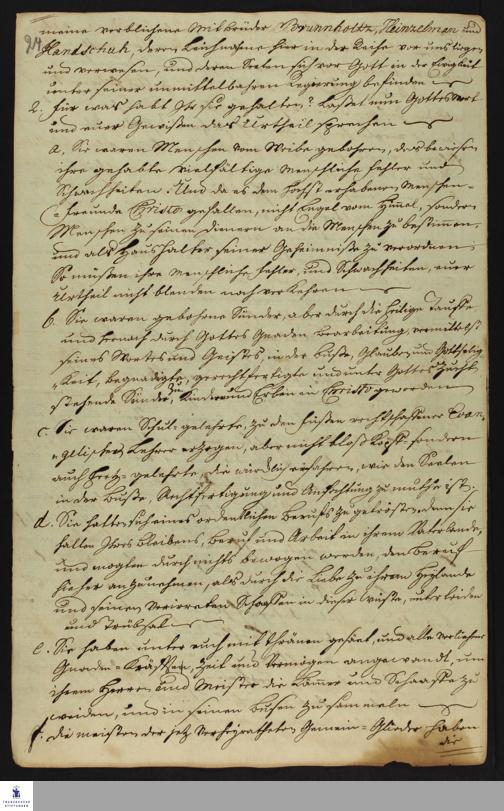 meine verblichene Mitbrüder Brunnholtz, Heinzelman und
24
Handschuh, deren Leichname hier in der Reihe vor uns liegen
und verwesen, und deren Seelen sich vor Gott in der Ewigkeit
unter seiner unmittelbahren Regierung befinden
2. für was habt Ihr sie gehalten? Laßet nun Gottes Wort
und euer Gewißen das Urtheil sprechen
a, Sie waren Menschen vom Weibe gebohren, das bewiesen
ihre gehabte vielfältige Menschliche Fehler und
Schwachheiten. Und da es dem höchst erhabenen Menschen-
freunde Christo gefallen, nicht Engel vom Himel, sondern
Menschen zu seinen dienern an die Menschen zu bestimmen,
und als Haushalter seiner Geheimniße zu verordnen
So müßen ihre menschliche Fehler, und Schwachheiten, euer
Urtheil nicht blenden noch verkehren
b. Sie waren gebohrne Sünder, aber durch die heilige Tauffe
und hernach durch Gottes Gnaden Bearbeitung, vermittelst
seines Wortes und Geistes, in der Buße, Glauben und Gottselig
keit, begnadigte, gerechtfertigte und unter Gottes Zucht
stehende Sünder, zu Kinder und Erben in Christo geworden
c. Sie waren Schul-gelehrte, zu den Füßen rechtschaffener Evan
gelischer Lehrer erzogen, aber nicht bloß Kopff sondern
auch Hertz-gelehrte, die würcklich erfahren, wie den Seelen
in der Buße, Rechtfertigung und Anfechtung zu muthe ist,
d. Sie hatten sich eines ordentlichen Berufs zu getrösten, denn sie
hatten Ihres bleibens, Beruf und Arbeit in ihrem Vaterlande,
und mogten durch nichts bewogen werden, den Beruf
hieher anzunehmen, als durch die Liebe zu ihrem Heylande
und seinen verirreten Schaaffen in dieser Wüste, unter leiden
und Trübsal
e. Sie haben unter euch mit Thränen gesäet, und alle verliehene
Gnaden-Kräfften, Zeit und Vermögen angewandt, um
ihrem Herren und Meister die Lämer und Schaaffe zu
weiden, und in seinen Busen zu sammeln
f. die meisten der jetz verheyratheten Gemein-Glieder haben
die
FRANCKESCHE
STIFTUNGEN